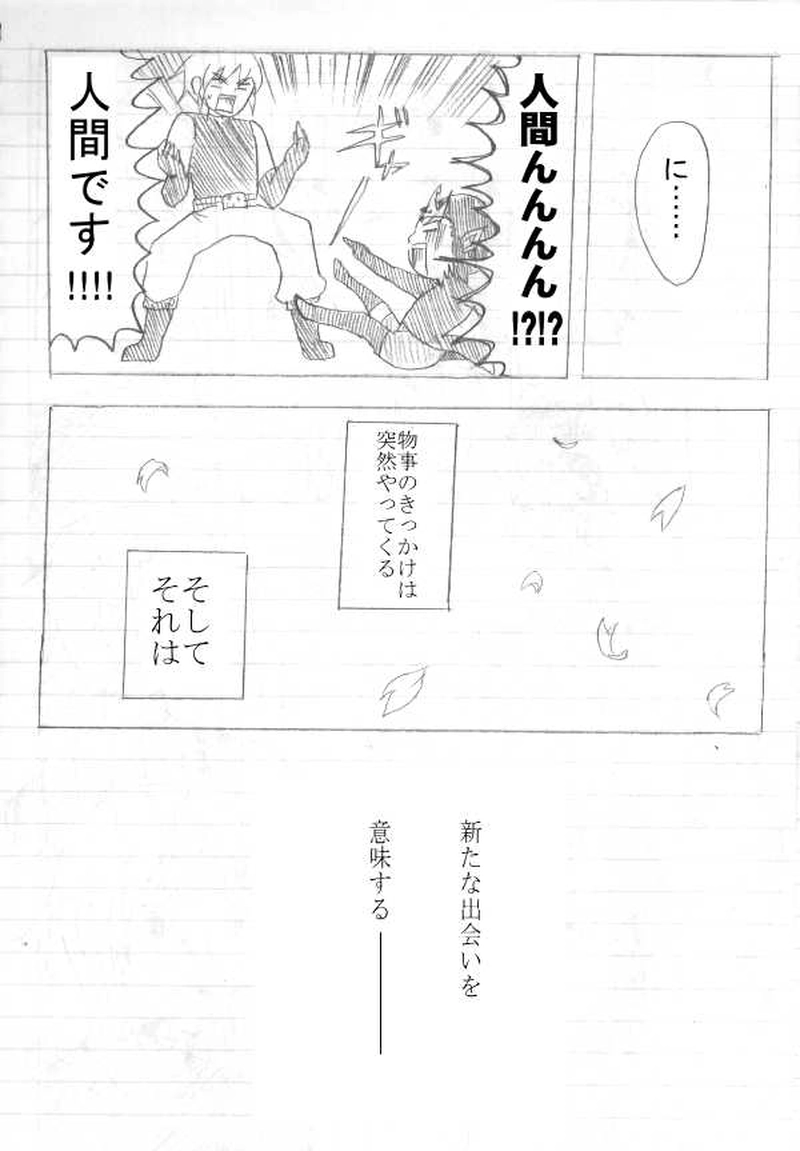 に……
人間んんんん!?!?
ギャ
人間です!!!!
物事のきっかけは
突然やってくる
そして
それは
新たな出会いを
意味する――